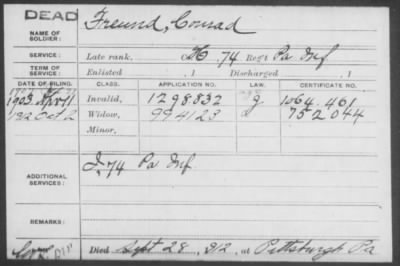 DEAD
NAME OF SOLDIER: Freund, Conrad
SERVICE: Late rank, Co H, 74 Reg't Pa Inf
TERM OF SERVICE: Enlisted , 1 Discharged , 1
DATE OF FILING. CLASS. APPLICATION NO. LAW. CERTIFICATE NO.
1903 April 1 Invalid, 1298832 g 1064.461
1912 Oct 2 Widow, 994123 752044
Minor,
ADDITIONAL SERVICES: I, 74 Pa Inf
REMARKS:
Died Sept 28, 912, at Pittsburgh Pa